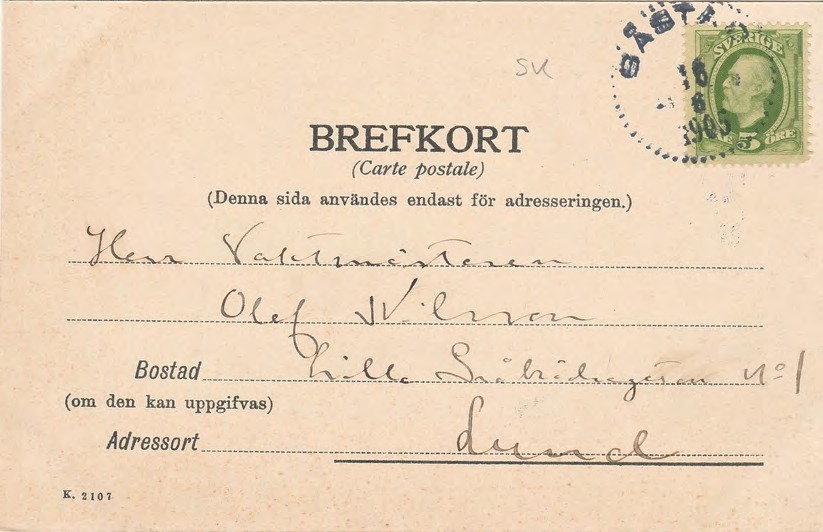 SK
BÅSTAD
16
6
1905
SVERIGE
5 ÖRE
BREFKORT
(Carte postale)
(Denna sida användes endast för adresseringen.)
Herr Vaktmästaren
Olof Nilsson
Bostad Lilla Gråbrödragatan No 1
(om den kan uppgifvas)
Adressort Lund
K. 2107